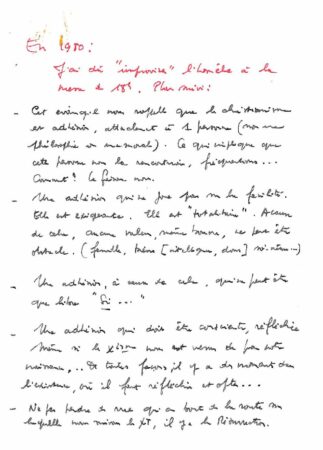 En 1980 :
J'ai dû "improviser" l'homélie à la
messe de 18h. Plan suivi :
- Cet évangile nous rappelle que le christianisme
est adhésion, attachement à 1 personne (non une
philosophie ou une morale). Ce qui implique que
cette personne nous la rencontrions, fréquentions...
Comment ? le faisons nous.
- Une adhésion qui ne joue pas sur la facilité.
Elle est exigeante. Elle est "totalitaire". A cause
de cela, aucune valeur, même bonne, ne peut être
obstacle. (famille, même [intellectuelle, dons] soi-même...)
- Une adhésion, à cause de cela, qui ne peut être
que libre "Si ..."
- Une adhésion qui doit être consciente, réfléchie
même si le xisme nous est venu de par notre
naissance,... De toutes façons il y a des moments dans
l'existence, où il faut réfléchir et opter...
- Ne pas perdre de vue qu'au bout de la route sur
laquelle nous suivons le Xt, il y a la Résurrection.